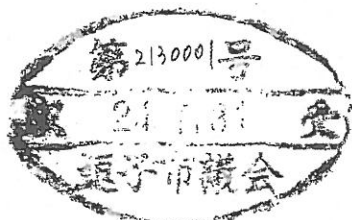 第2130001号
24 受
逗子市議会